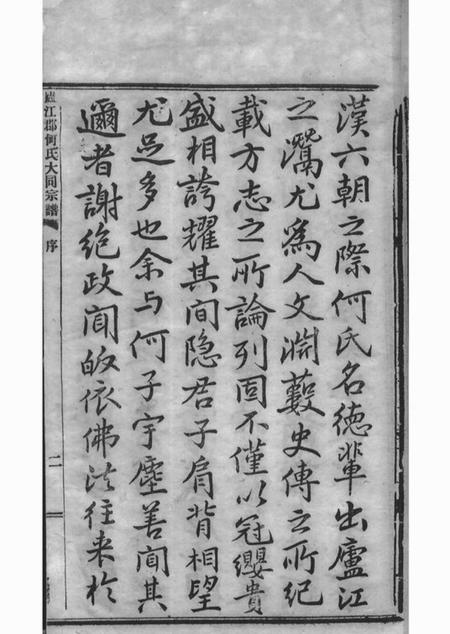 漢六朝之際何氏名德輩出廬江
之灊尤為人文淵藪史傳之所紀
載方志之所論列固不僅以冠纓貴
盛相誇耀其间隐君子肩背相望
尤足多也余与何子宇塵善闻其
邇者謝绝政闻皈依佛法往来於
廬江郡何氏大同宗譜 序 二